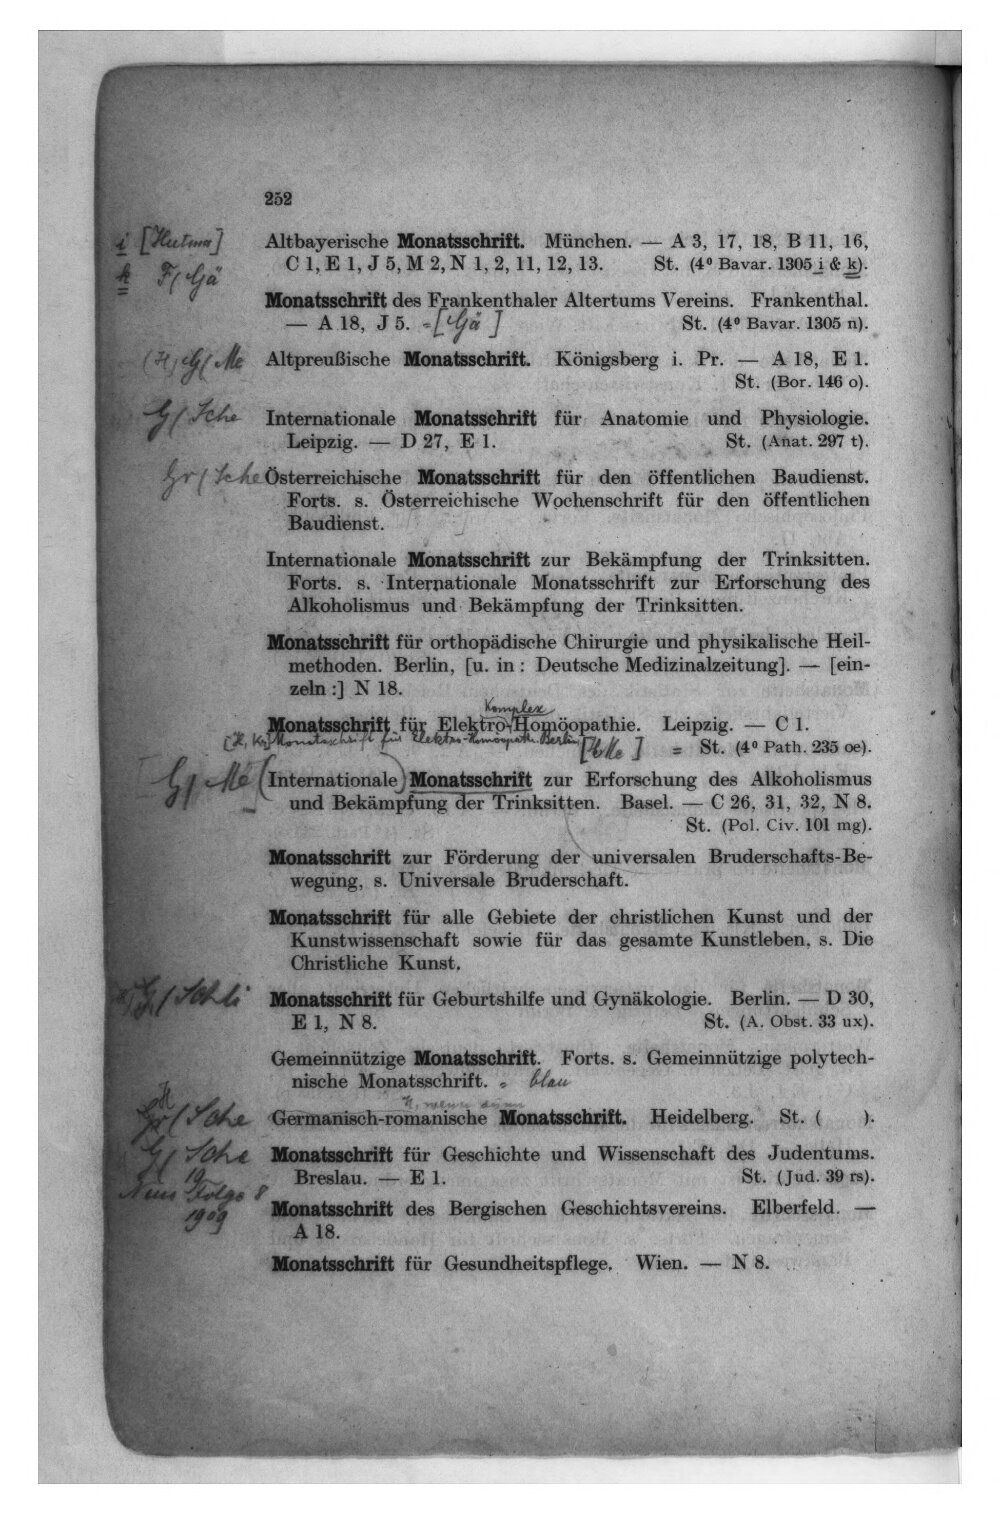 252
i [Hutma] Altbayerische Monatsschrift. München. — A 3, 17, 18, B 11, 16,
k F/Gä C 1, E 1, J 5, M 2, N 1, 2, 11, 12, 13. St. (4⁰ Bavar. 1305 i & k).
Monatsschrift des Frankenthaler Altertums Vereins. Frankenthal.
— A 18, J 5. =[Gä] St. (4⁰ Bavar. 1305 n).
(H) G/Me Altpreußische Monatsschrift. Königsberg i. Pr. — A 18, E 1.
St. (Bor. 146 o).
G/Sche Internationale Monatsschrift für Anatomie und Physiologie.
Leipzig. — D 27, E 1. St. (Anat. 297 t).
Gr/Sche Österreichische Monatsschrift für den öffentlichen Baudienst.
Forts. s. Österreichische Wochenschrift für den öffentlichen
Baudienst.
Internationale Monatsschrift zur Bekämpfung der Trinksitten.
Forts. s. Internationale Monatsschrift zur Erforschung des
Alkoholismus und Bekämpfung der Trinksitten.
Monatsschrift für orthopädische Chirurgie und physikalische Heil-
methoden. Berlin, [u. in : Deutsche Medizinalzeitung]. — [ein-
zeln :] N 18.
Komplex
Monatsschrift für Elektro-Homöopathie. Leipzig. — C 1.
Monatsschrift für Elektro-Homöopath. Berlin = St. (4⁰ Path. 235 oe).
G/Me (Internationale) Monatsschrift zur Erforschung des Alkoholismus
und Bekämpfung der Trinksitten. Basel. — C 26, 31, 32, N 8.
St. (Pol. Civ. 101 mg).
Monatsschrift zur Förderung der universalen Bruderschafts-Be-
wegung, s. Universale Bruderschaft.
Monatsschrift für alle Gebiete der christlichen Kunst und der
Kunstwissenschaft sowie für das gesamte Kunstleben, s. Die
Christliche Kunst.
G/Schli Monatsschrift für Geburtshilfe und Gynäkologie. Berlin. — D 30,
E 1, N 8. St. (A. Obst. 33 ux).
Gemeinnützige Monatsschrift. Forts. s. Gemeinnützige polytech-
nische Monatsschrift. = blau
H
Gr/Sche Germanisch-romanische Monatsschrift. Heidelberg. St. ( ).
G/Sche Monatsschrift für Geschichte und Wissenschaft des Judentums.
Breslau. — E 1. St. (Jud. 39 rs).
Neue Folge 8
1909 Monatsschrift des Bergischen Geschichtsvereins. Elberfeld. —
A 18.
Monatsschrift für Gesundheitspflege. Wien. — N 8.